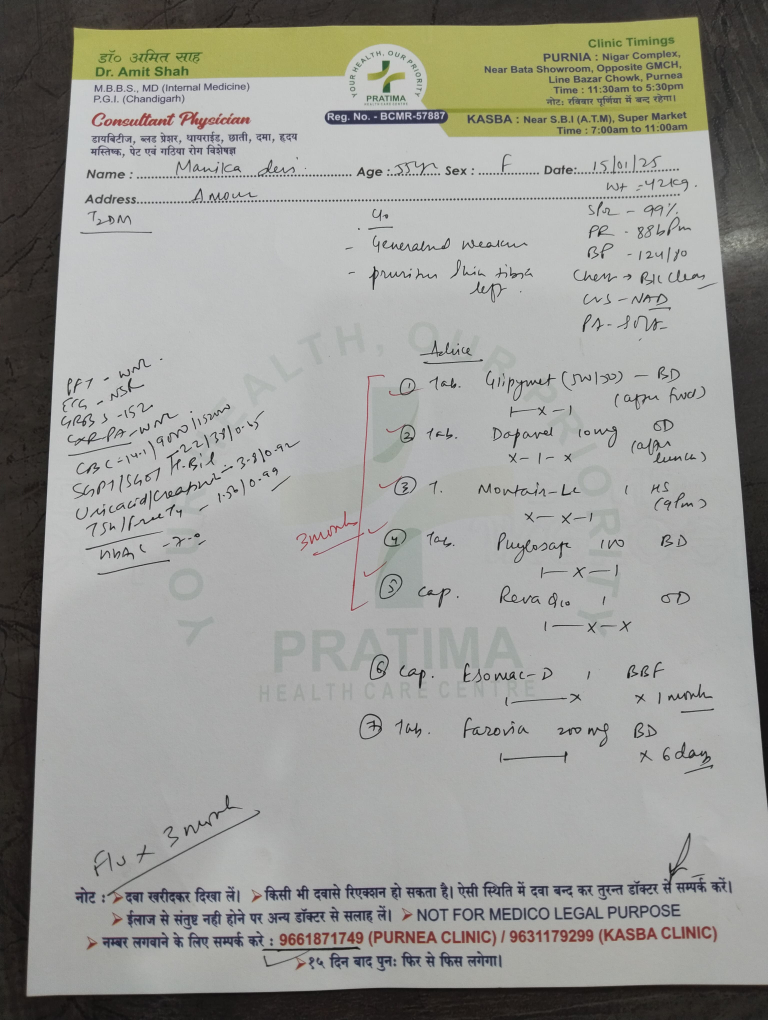 डॉ० अमित साह
Dr. Amit Shah
M.B.B.S., MD (Internal Medicine)
P.G.I. (Chandigarh)
Consultant Physician
डायबिटीज, ब्लड प्रेशर, थायराईड, छाती, दमा, हृदय
मस्तिष्क, पेट एवं गठिया रोग विशेषज्ञ
YOUR HEALTH, OUR PRIORITY
PRATIMA
HEALTH CARE CENTRE
Reg. No. - BCMR-57887
Clinic Timings
PURNIA : Nigar Complex,
Near Bata Showroom, Opposite GMCH,
Line Bazar Chowk, Purnea
Time : 11:30am to 5:30pm
नोट: रविवार पूर्णिया में बन्द रहेगा।
KASBA : Near S.B.I (A.T.M), Super Market
Time : 7:00am to 11:00am
Name : Manika devi Age : 55yr Sex : F Date: 15/01/25
Wt = 42kg.
Address Amour
T2DM
c/o
- Generalised weakness
- pruritus shin tibia
left
- 99%
PR - 88bpm
BP - 124/80
Chest → B/L Clear
CVS - NAD
PA - soft
PFT - WNL
ECG - NSR
GRBS - 152
CXR-PA - WNL
CBC = 14.1/9000/
SGPT/SGOT/T.Bil
Uricacid/creatinine - 3.8/0.92
TSH/freeT4 - 1.56/0.99
HbA1c - 7.0
Advice
① Tab. - BD
(after food)
1—x—1
② Tab. 10mg OD
(after lunch)
x-1-x
③ T. Montair-LC 1 HS
(9pm)
x—x—1
④ Tab. BD
1—x—1
⑤ Cap. Reva Q10 1 OD
1—x—x
3 month
⑥ Cap. Esomac-D 1 BBF
1——x x 1 month
⑦ Tab. Farovia 200mg BD
1——1 x 6 days
F/U x 3 month
YOUR HEALTH, OUR PRIORITY
PRATIMA
HEALTH CARE CENTRE
नोट : ➤दवा खरीदकर दिखा लें। ➤किसी भी दवासे रिएक्शन हो सकता है। ऐसी स्थिति में दवा बन्द कर तुरन्त डॉक्टर से सम्पर्क करें।
➤ईलाज से संतुष्ट नही होने पर अन्य डॉक्टर से सलाह लें। ➤NOT FOR MEDICO LEGAL PURPOSE
➤नम्बर लगवाने के लिए सम्पर्क करे : 9661871749 (PURNEA CLINIC) / 9631179299 (KASBA CLINIC)
➤१५ दिन बाद पुनः फिर से फिस लगेगा।